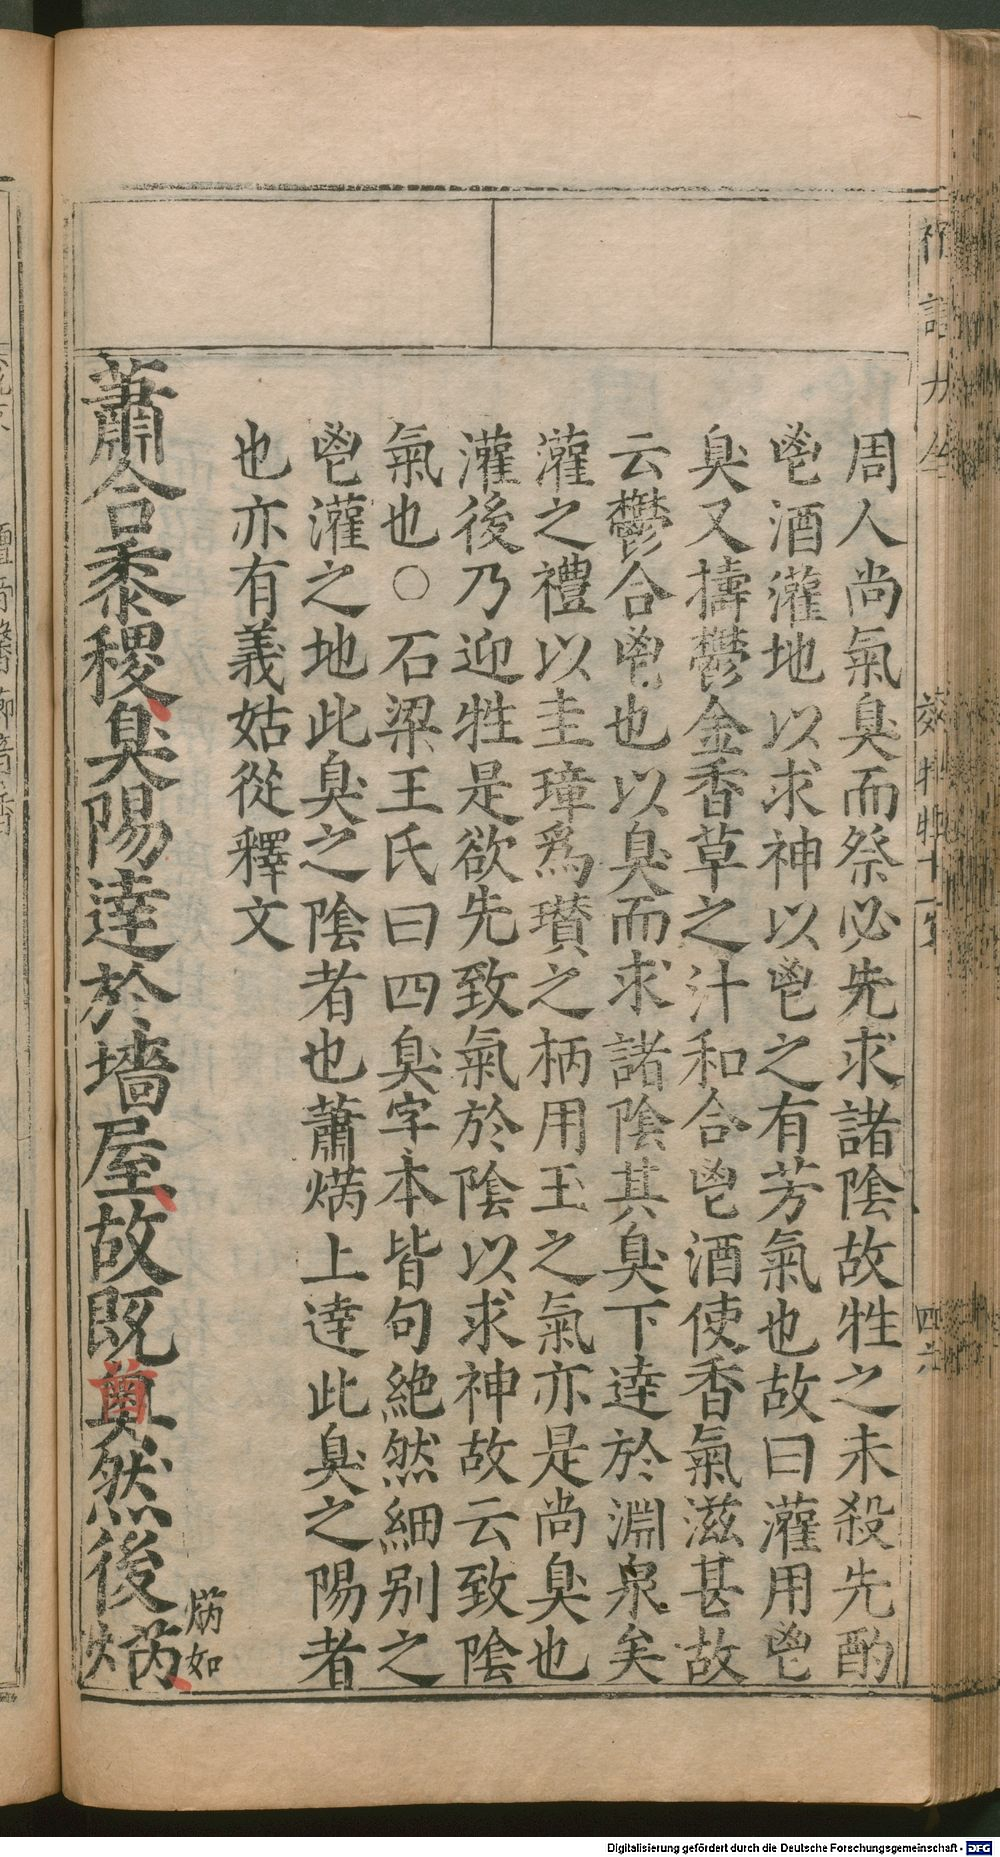 周人尚氣臭而祭必先求諸陰故牲之未殺先酌
鬯酒灌地以求神以鬯之有芳氣也故曰灌用鬯
臭又擣鬱金香草之汁和合鬯酒使香氣滋甚故
云鬱合鬯也以臭而求諸陰其臭下達於淵泉矣
灌之禮以圭璋爲瓚之柄用玉之氣亦是尚臭也
灌後乃迎牲是欲先致氣於陰以求神故云致陰
氣也○石梁王氏曰四臭字本皆句絶然細别之
鬯灌之地此臭之陰者也蕭焫上達此臭之陽者
也亦有義姑從釋文
焫如
蕭合黍稷臭陽達於墻屋故既奠然後焫
奠
郊特牲十一
四六
Digitalisierung gefördert durch die Deutsche Forschungsgemeinschaft - DFG